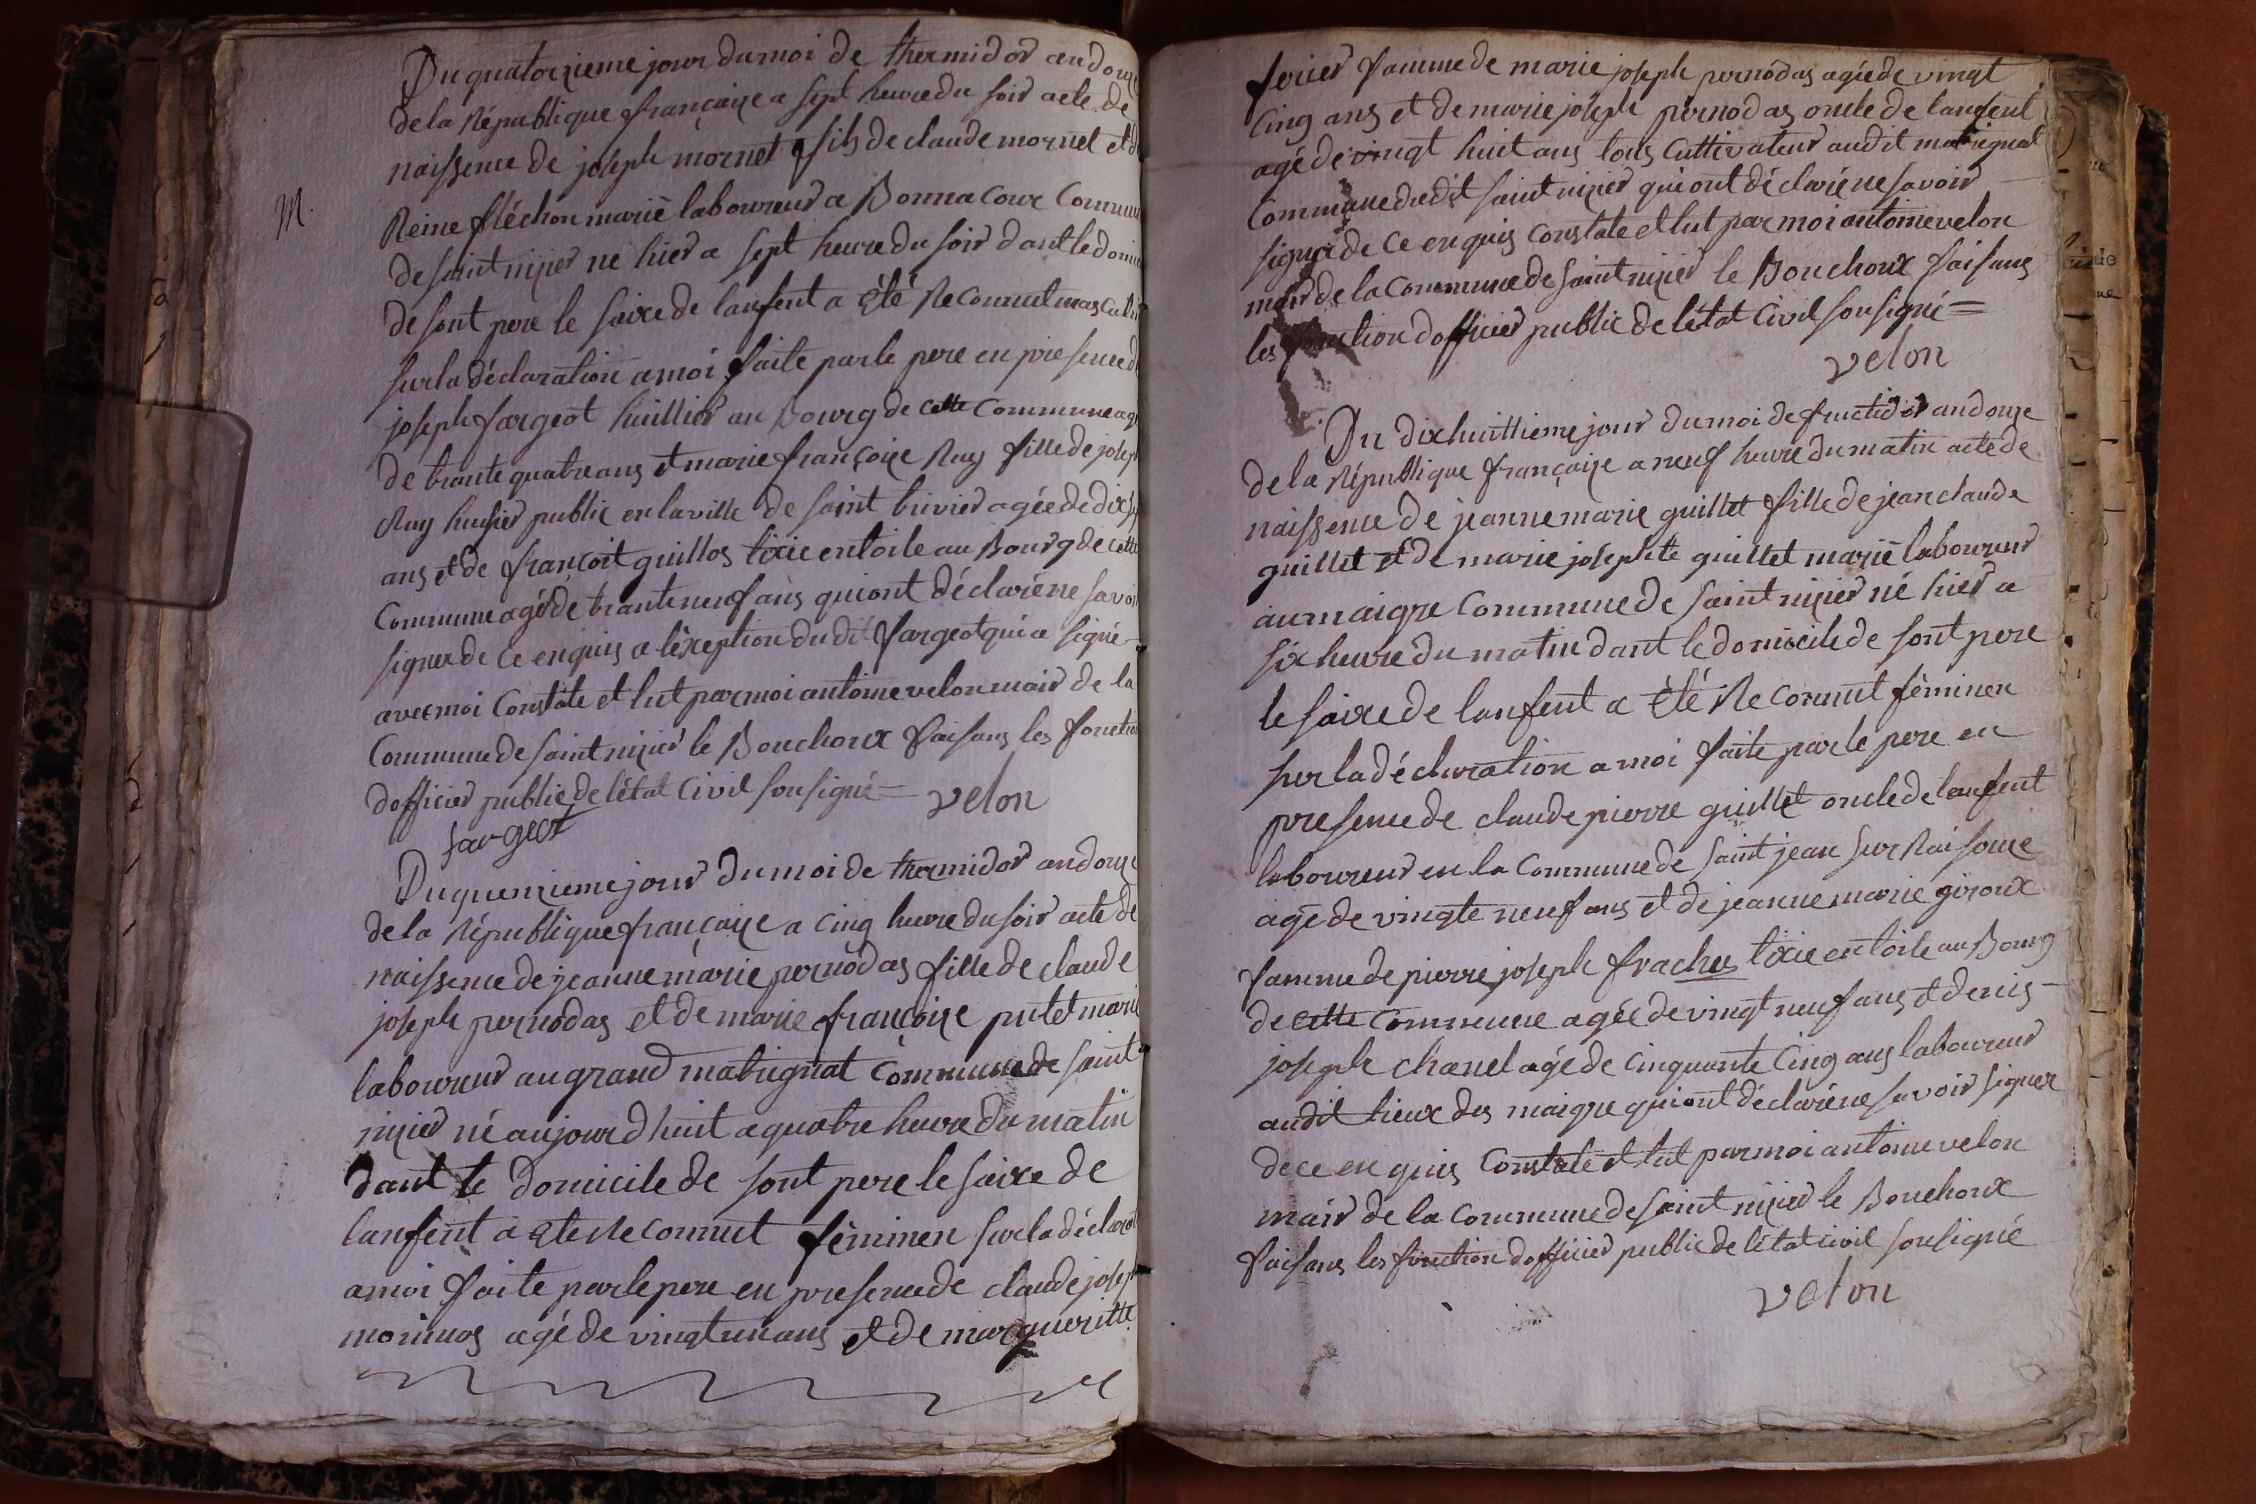 Du quatorzieme jour du moi de thermidor an douze
de la République française a sept heure du soir acte de
naissence de joseph mornet fils de claude mornet et de
M.
Reine fléchon marié laboureur a Bonnacour Commune
de saint nizier né hier a sept heure du soir dant le domi
de sont pere le saixe de lanfent a été Reconnut masculin
sur la déclaration a moi faite par le pere en presence de
joseph fargeot huillier au Bourg de cette Commune agé
de trante quatre ans et marie françoise Ruy fille de joseph
Ruy husier public en la ville de saint trivier agée de dix
ans et de françoit guillos tixie en toile au Bourg de cette
Commune agé de trante neuf ans qui ont déclaré ne savoir
signer de ce enquis a léxception du dit fargeot qui a signé
avec moi Constate et lut par moi antoine velon mair de la
Commune de saint nizier le Bouchoux faisans les fonction
dofficier public de létat Civil sousigné = velon
fargeot
Du quenzieme jour du moi de thermidor an douze
de la République française a cinq heure du soir acte de
naissence de jeanne marie pernodas fille de claude
joseph pernodas et de marie françoise putet marié
laboureur au grand matrignat Commune de saint
nizier né aujourdhuit a quatre heure du matin
dant le domicile de sont pere le saixe de
lanfent a été Reconnut féminen sur la déclarat
a moi faite par le pere en presence de claude joseph
agé de vingt un ans et de margueritte
ferier famme de marie joseph pernodas agée de vingt
cinq ans et de marie joseph pernodas oncle de lanfent
agé de vingt huit ans tous Cultivateur audit matrignat
Commune dudit saint nizier qui ont déclaré ne savoir
signer de ce enquis constate et lut par moi antoine velon
mair de la Commune de saint nizier le Bouchoux faisans
les fonction dofficier public de létat Civil sousigné =
velon
Du dix huittieme jour du moi de fructidor an douze
de la République française a neuf heure du matin acte de
naissence de jeanne marie guillet fille de jean claude
guillet et de marie josephte guillet marié laboureur
au maigre Commune de saint nizier né hier a
six heure du matin dant le domicile de sont pere
le saixe de lanfent a été Reconnut féminen
sur la déclaration a moi faite par le pere en
presence de claude pierre guillet oncle de lanfent
laboureur en la Commune de saint jean sur Raisouse
agé de vingte neuf ans et de jeanne marie giroux
famme de pierre joseph frachey tixie en toile au Bourg
de cette commune agée de vingt neuf ans et denis
joseph chanel agé de cinquante cinq ans laboureur
audit lieux des maigre qui ont déclaré ne savoir signer
de ce enquis Constate et lut par moi antoine velon
mair de la Commune de saint nizier le Bouchoux
faisans les fonction dofficier public de létat civil sousigné
velon